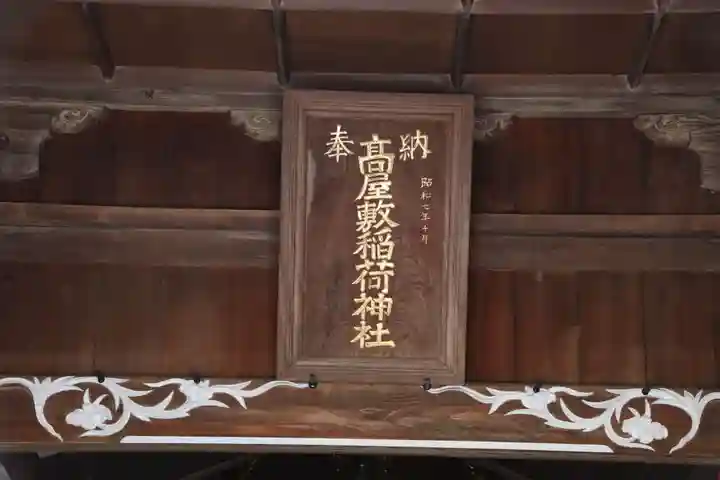 奉納
髙屋敷稲荷神社
昭和七年十月